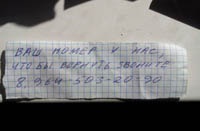 ВАШ НОМЕР У НАС,
ЧТО БЫ ВЕРНУТЬ ЗВОНИТЕ
8.964-503-20-90